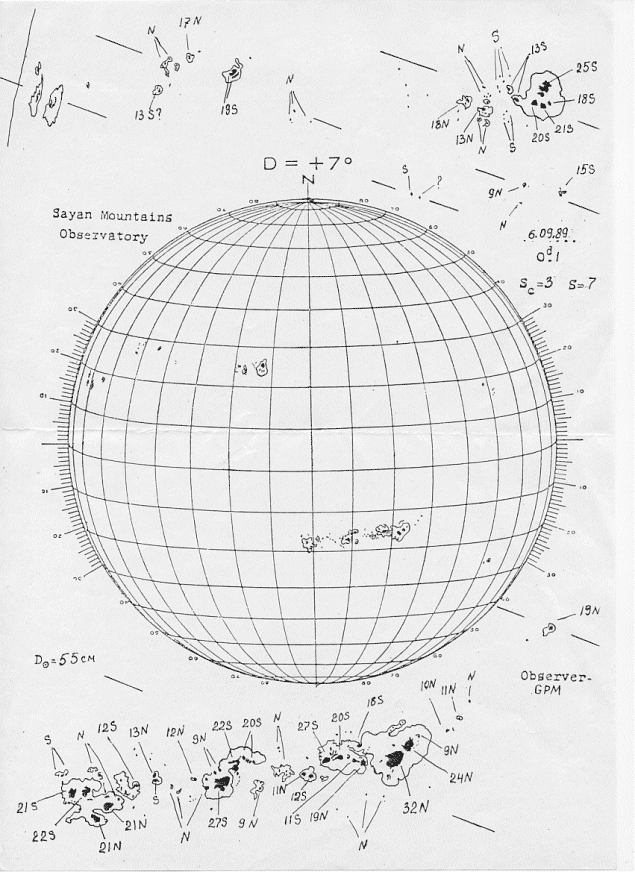 N
17N
13S?
18S
N
N
S
13S
25S
18S
21S
20S
S
N
13N
18N
D = +7°
N
S
?
9N
N
15S
Sayan Mountains
Observatory
6.09.89
0ᵈ.1
S꜀=3 S=7
D☉=55см
19N
Observer-
GPM
S
N
12S
13N
12N
9N
22S
20S
N
27S
20S
18S
10N
11N
N
9N
24N
32N
N
19N
11S
12S
11N
9N
27S
N
S
21N
21N
22S
21S
S